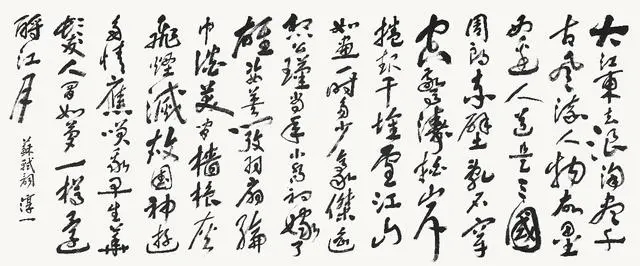 大江東去浪淘盡千
古風流人物故壘
西邊人道是三國
周郎赤壁亂石穿
空驚濤拍岸
捲起千堆雪江山
如畫一時多少豪傑遙
想公瑾當年小喬初嫁了
雄姿英發羽扇綸
巾談笑間檣櫓灰
飛煙滅故國神遊
多情應笑我早生華
髮人間如夢一樽還
酹江月
蘇軾詞 淳一